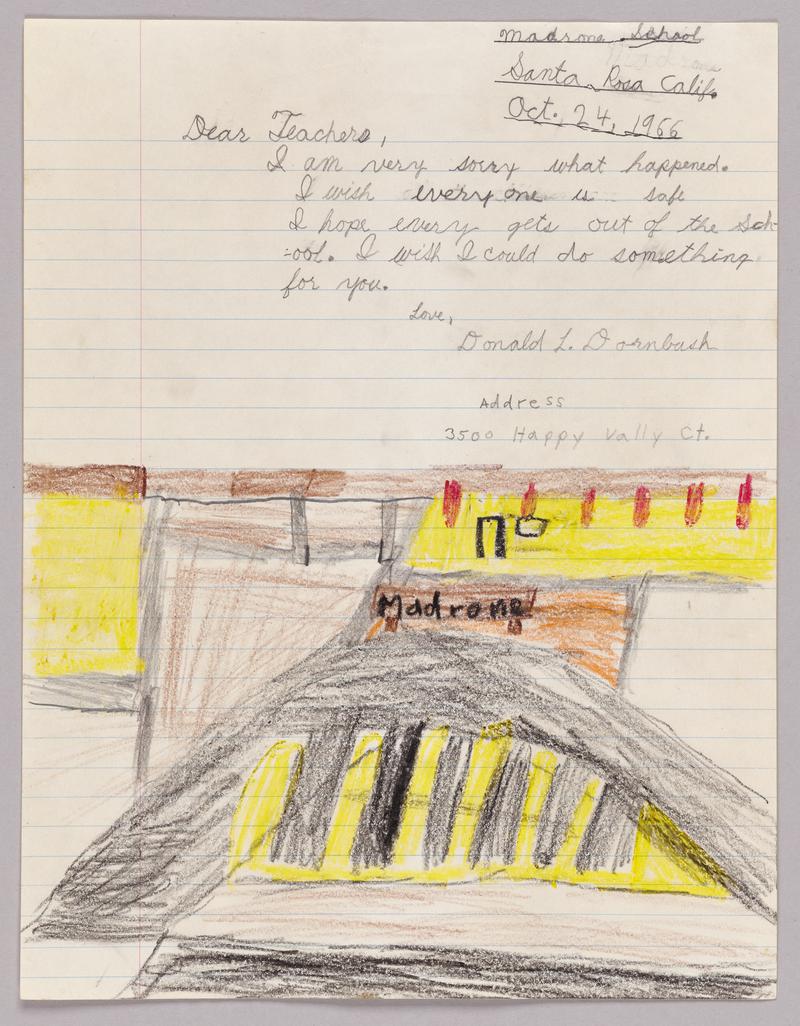 Madrone School
Santa Rosa Calif.
Oct. 24, 1966
Dear Teachers,
I am very sorry what happened.
I wish everyone is safe
I hope every gets out of the Sch-
-ool. I wish I could do something
for you.
Love,
Donald L. Dornbush
Address
3500 Happy Vally Ct.
Madrone